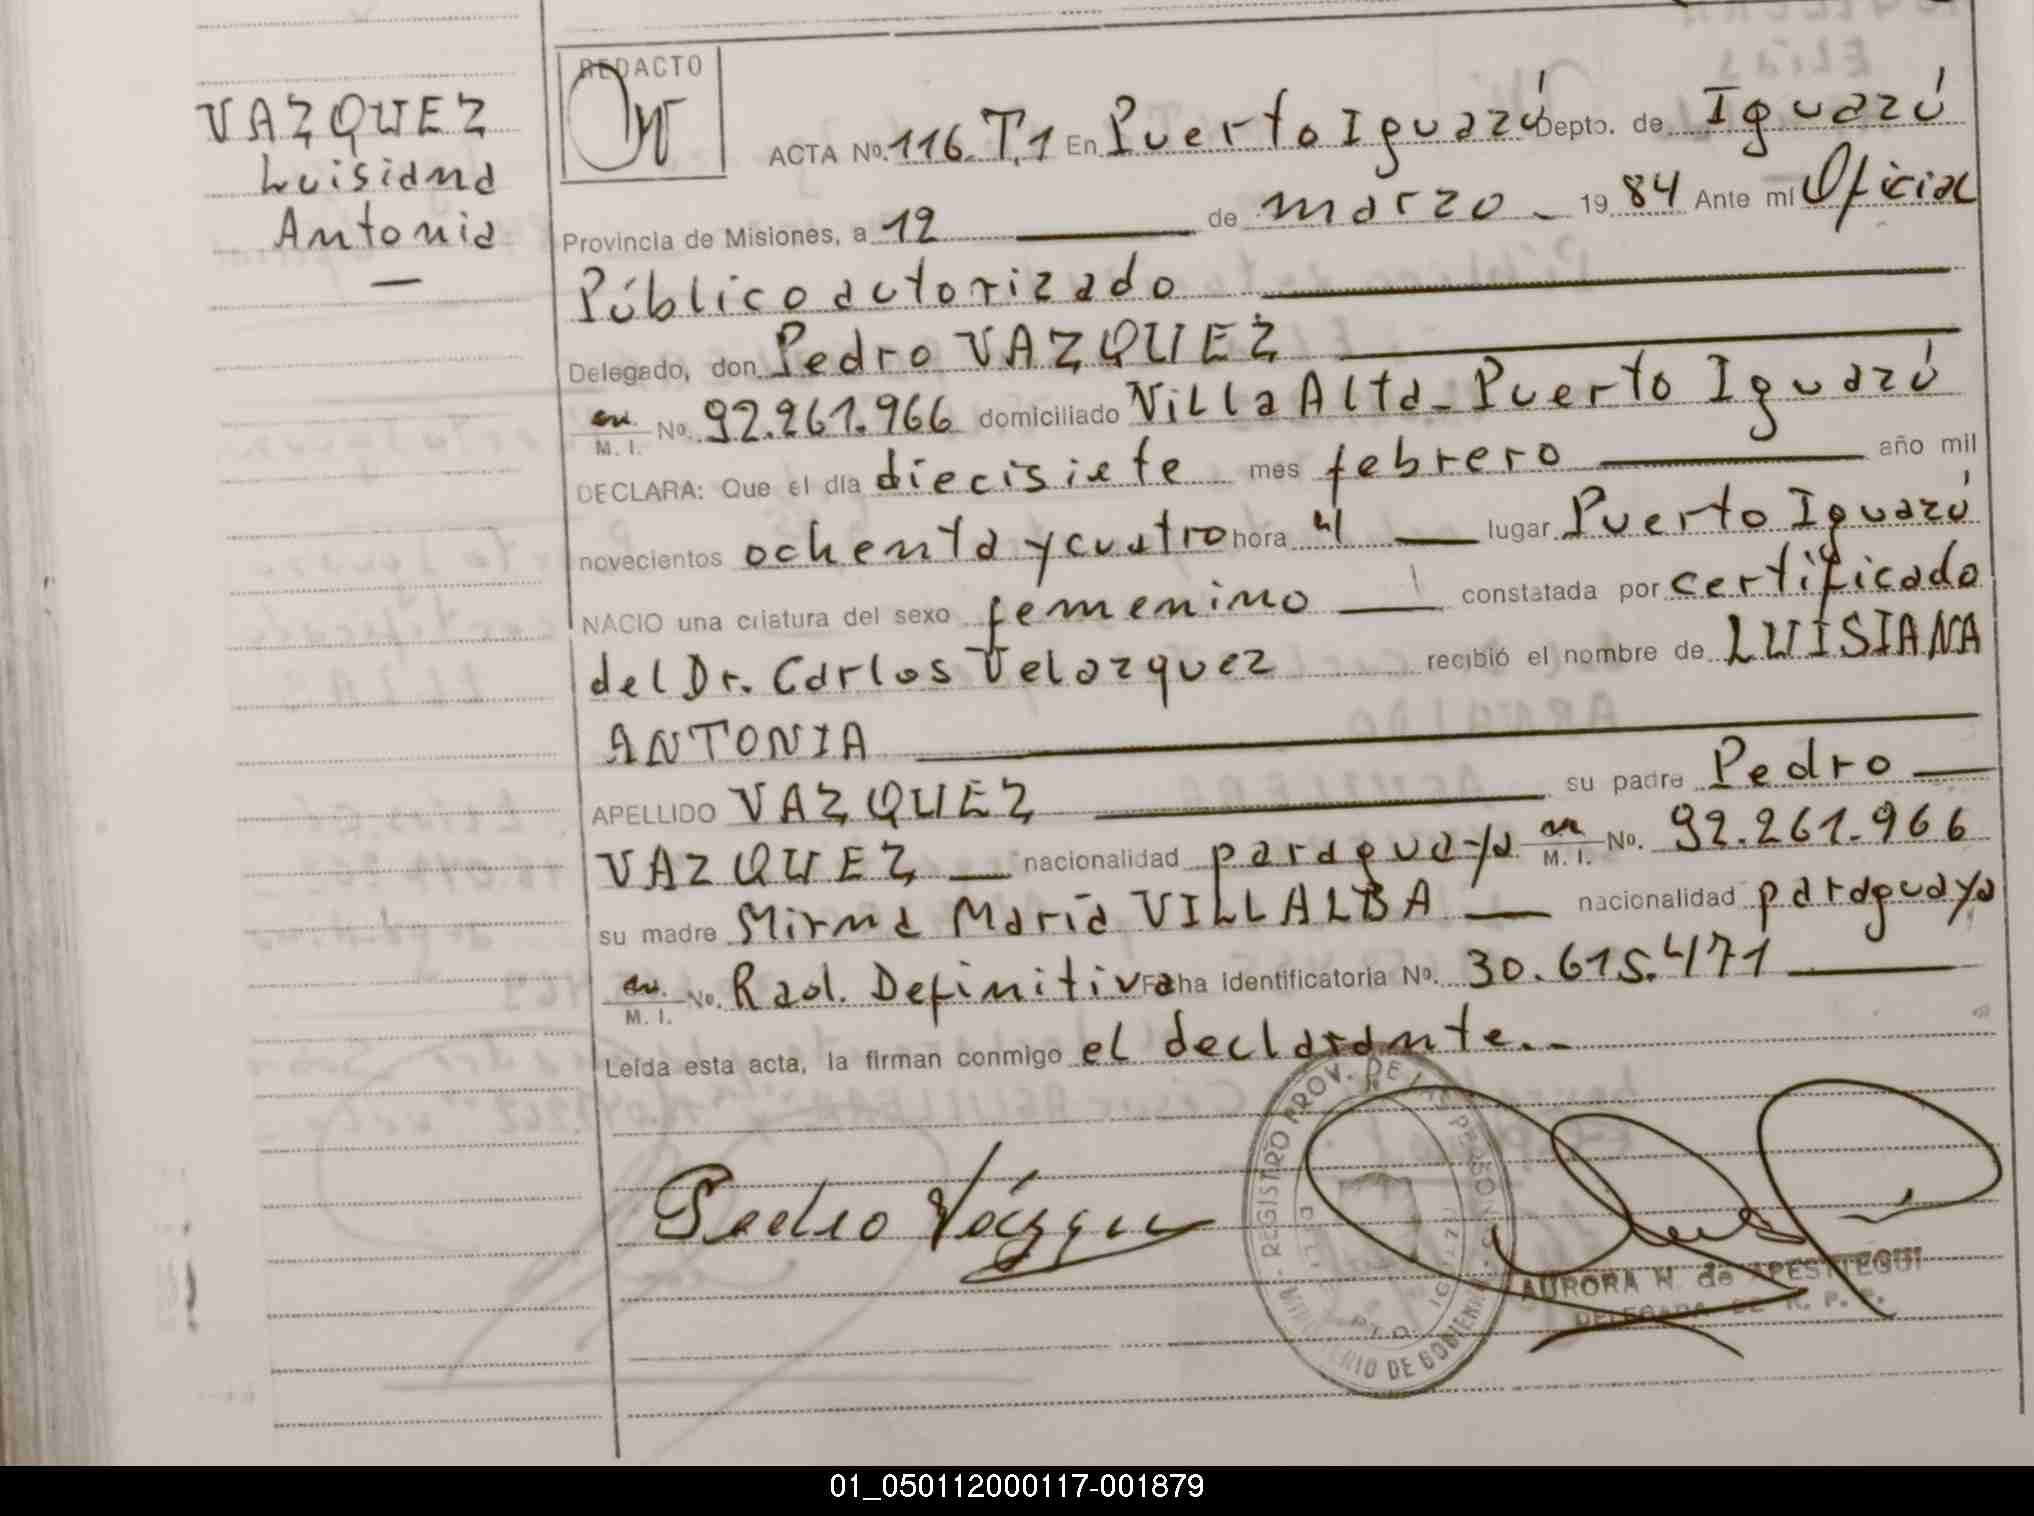 VAZQUEZ
Luisiana
Antonia
—
REDACTO
ACTA No. 116. T.1 En Puerto Iguazú Depto. de Iguazú
Provincia de Misiones, a 12 de marzo - 19 84 Ante mi Oficial
Público autorizado
Delegado, don Pedro VAZQUEZ
M. I. No. 92.261.966 domiciliado Villa Alta - Puerto Iguazú
DECLARA: Que el día diecisiete mes febrero año mil
novecientos ochenta y cuatro hora 4 lugar Puerto Iguazú
NACIO una criatura del sexo femenino constatada por certificado
del Dr. Carlos Velazquez recibió el nombre de LUISIANA
ANTONIA
APELLIDO VAZQUEZ su padre Pedro
VAZQUEZ nacionalidad paraguaya M. I. No. 92.261.966
su madre Mirna María VILLALBA nacionalidad paraguaya
M. I. No. Rad. Definitiva Ficha identificatoria No. 30.615.471
Leída esta acta, la firman conmigo el declarante.-
REGISTRO PROV. DE LAS PERSONAS
MINISTERIO DE GOBIERNO
DPTO. IGUAZU
Pedro Vázquez
AURORA N. de APESTEGUI
DELEGADA DE R. P. P.
01_050112000117-001879